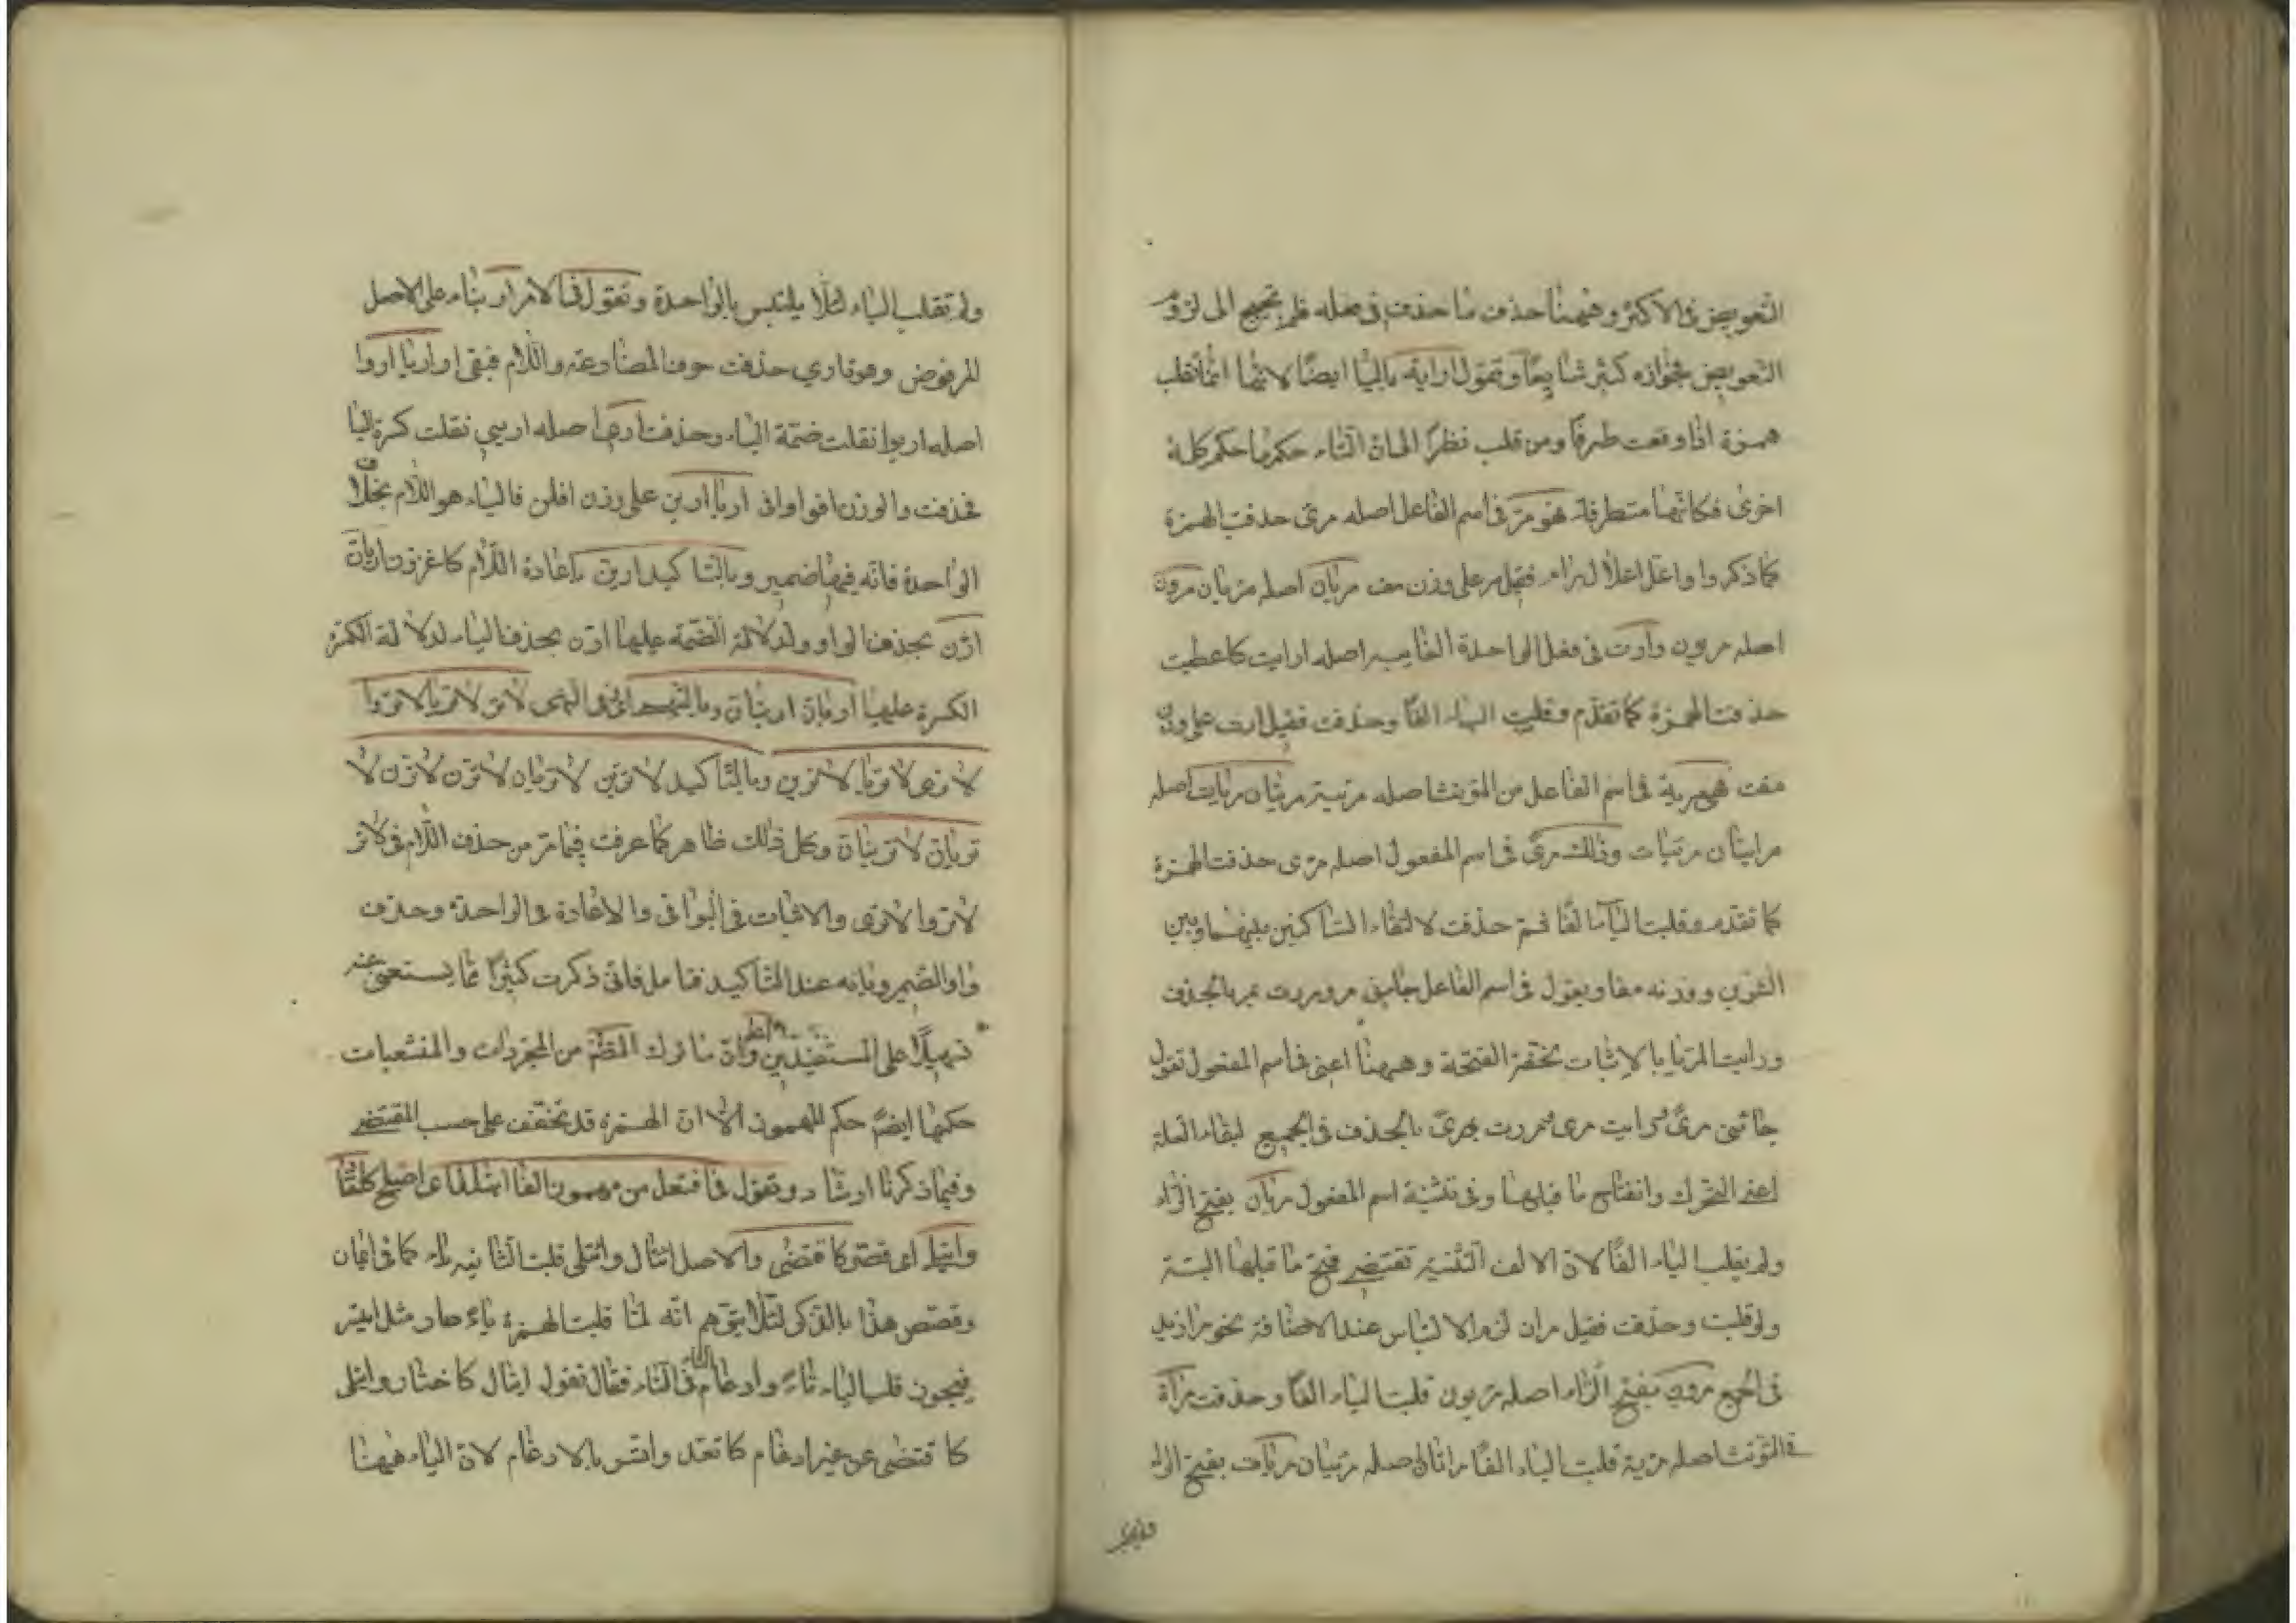 التعويض في الاكثر وههنا حذف ما حذف في فعله فلم يحتج الى لزوم
التعويض فجوازه كثير شايعا وتقول اراية بالياء ايضا لانها انما تقلب
همزة اذا وقعت طرفا ومن قلب نظر الى ان التاء حكمها حكم كلمة
اخرى فكانها متطرفة فهو مر في اسم الفاعل اصله مرئى حذفت الهمزة
كما ذكروا واعل اعلال رام فقيل مر على وزن مف مريان اصله مرئيان مرون
اصله مرءيون وارت في فعل الواحدة الغايبه اصله ارايت كاعطيت
حذفت الهمزة كما تقدم وقلبت الياء الفا وحذفت فقيل ارت على وزن
مفت فهى مرية في اسم الفاعل من المؤنث اصله مرئية مريتان مريات اصله
مرايتان مرئيات وذلك مرى في اسم المفعول اصله مرئى حذفت الهمزة
كما تقدم وقلبت الياء الفا ثم حذفت لالتقاء الساكنين بينهما وبين
التنوين ووزنه مفا ويقول في اسم الفاعل جائنى مر ومررت بمر بالحذف
ورايت المرئيا بالاثبات لخفة الفتحة وههنا اعنى في اسم المفعول تقول
جائنى مرى ورايت مرى ومررت بمرى بالحذف في الجميع لبقاء العلة
اعنى التحرك وانفتاح ما قبلها وفي تثنية اسم المفعول مريان بفتح الراء
ولم يقلب الياء الفا لان الالف التثنية تقتضى فتح ما قبلها البتة
ولو قلبت وحذفت فقيل مران لزم الالتباس عند الاضافة نحو مرا زيد
في الجمع مرون بفتح الراء اصله مريون قلبت الياء الفا وحذفت مراة
في المؤنث اصله مرية قلبت الياء الفا مراتان اصله مريتان مريات بفتح الراء
ولم تقلب الياء لئلا يلتبس بالواحدة وتقول في الامر ار بناء على الاصل
المرفوض وهو تارى حذفت حرف المضارعة واللام فبقى ار اريا اروا
اصله اريوا نقلت ضمة الياء وحذفت ارى اصله اريي نقلت كسرة اليا
فحذفت والوزن افوا وافى اريا ارين على وزن افلن فالياء هو اللام بخلاف
الواحدة فانه فيها ضمير وبالتاكيد ارين باعادة اللام كاغزون اريان
ارن بحذف الواو ولدلالة الضمة عليها ارن بحذف الياء لدلالة الكسرة
الكسرة عليها اريان ارينان وبالنهى لا تر لا تريا لا تروا
لا ترى لا تريا لا ترين وبالتاكيد لا ترين لا تريان لا ترن لا ترن لا
تريان لا ترينان وكل ذلك ظاهر كما عرفت فيما مر من حذف اللام في لا تر
لا تروا لا ترى والاثبات في البواقى والاعادة في الواحدة وحذف
واو الضمير ويائه عند التاكيد فتامل فانى ذكرت كثيرا مما يستغنى عنه
تسهيلا على المستفيدين واعلم ان ما ترك المظم من المجردات والمنشعبات
حكمها ايضا حكم المهموز الا ان الهمزة قد تخفف على حسب المقتضى
وفيما ذكرنا ارشاد وتقول في افتعل من مهموز الفا ايتال اى اصلح كاقتا
وايتلى اى قصر كاقتضى والاصل ائتال وائتلى قلبت الثانيه ياء كما في ايمان
وخصص هذا بالذكر لئلا يتوهم انه لما قلبت الهمزة ياء صار مثل ايتسر
فيجوز قلب الياء تاء وادغام التاء في التاء فقال تقول ايتال كاختار وايتلى
كاقتضى من غير ادغام كاتعد واتسر بالادغام لان الياء ههنا